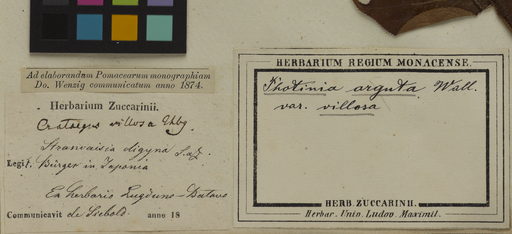 Ad elaborandum Pomacearum monographiam
Do. Wenzig communicatum anno 1874.
Herbarium Zuccarinii.
Crataegus villosa Thbg.
Stranvaisia digyna S. & Z.
Legit. Bürger in Japonia
Ex herbario Lugduno-Batavo
Communicavit de Siebold. anno 18
HERBARIUM REGIUM MONACENSE.
Photinia arguta Wall.
var. villosa
HERB. ZUCCARINII.
Herbar. Univ. Ludov. Maximil.